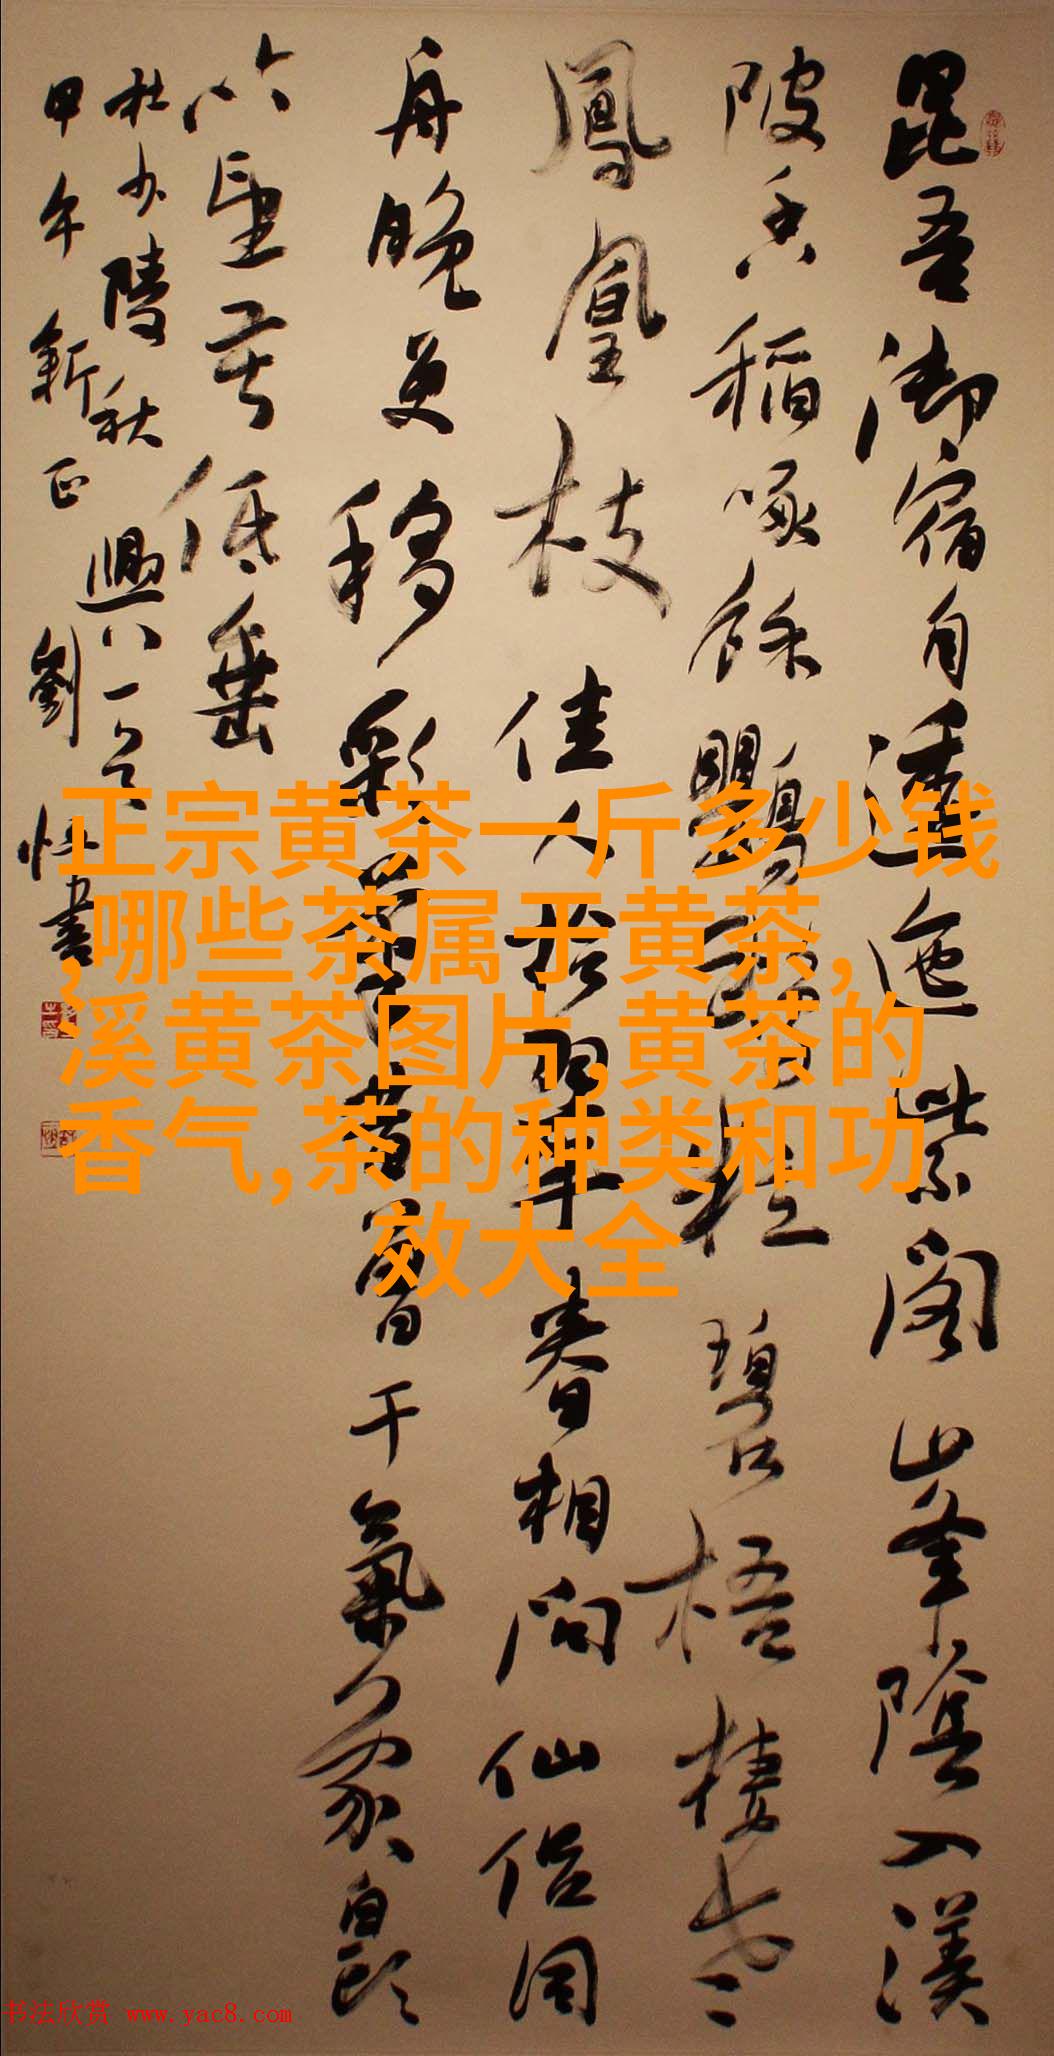 昆吾御宿自逶迤紫閣峰陰入渼
陂香稻啄餘鸚鵡粒碧梧棲老
鳳凰枝佳人拾翠春相問仙侶同
舟晚更移彩筆昔曾干氣象白頭
吟望苦低垂
杜少陵秋興八一
甲午新正劉恒書
正宗黄茶一斤多少钱
,哪些茶属于黄茶,
溪黄茶图片,黄茶的
香气,茶的种类和功
效大全
书法欣赏 www.yac8.com